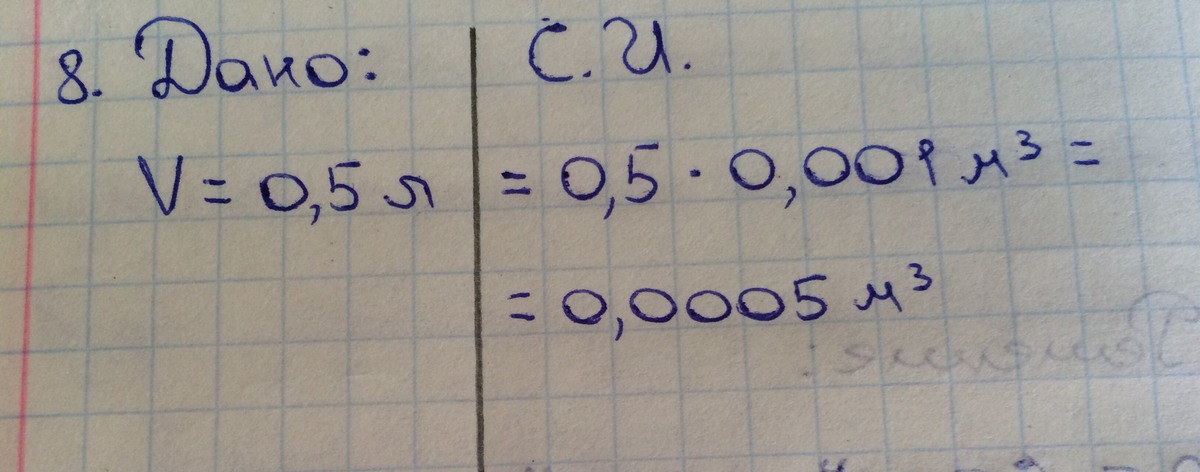 8. Дано: С.И.
V = 0,5 л = 0,5 · 0,001 м³ =
= 0,0005 м³